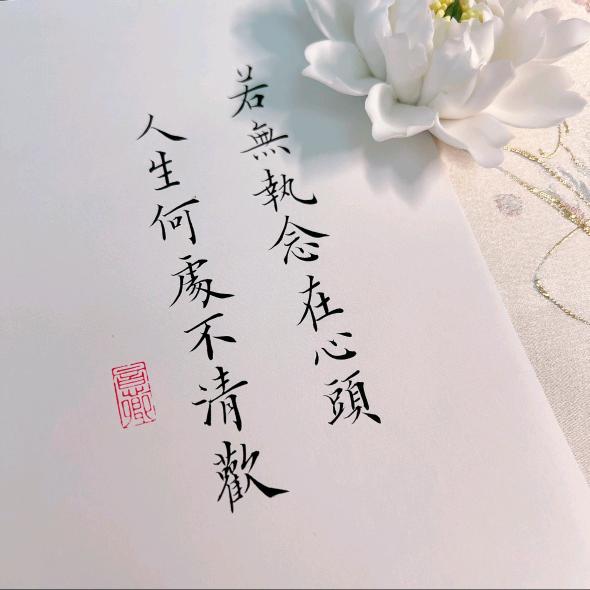 若無執念在心頭
人生何處不清歡